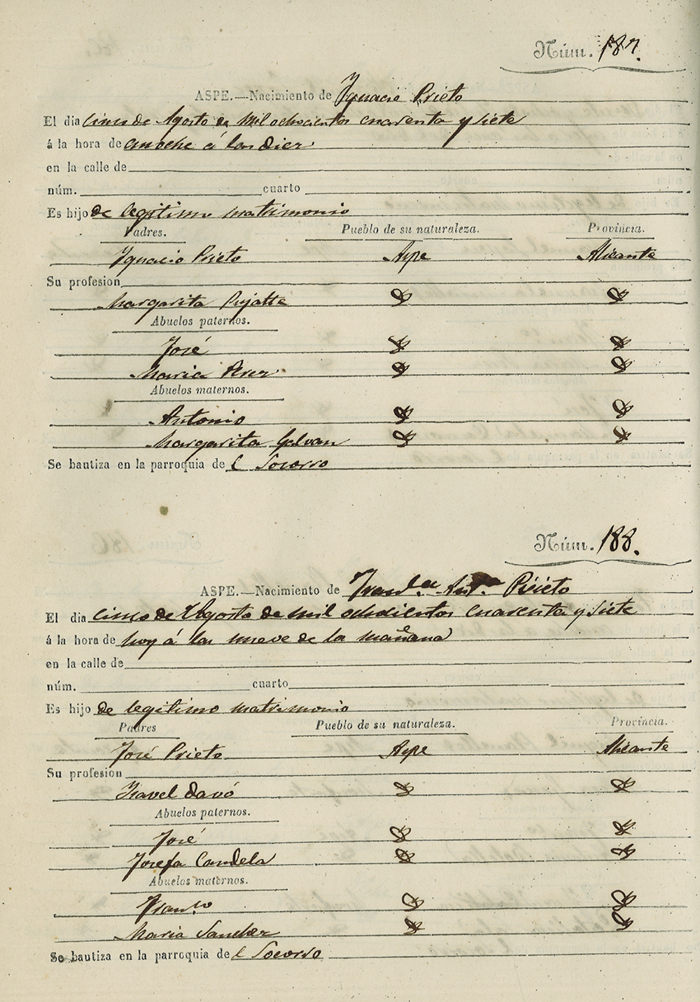 Núm. 187.
ASPE.—Nacimiento de Ygnacio Prieto
El dia cinco de Agosto de mil ochocientos cuarenta y siete
á la hora de anoche á las diez
en la calle de
núm. cuarto
Es hijo de legitimo matrimonio
Padres. Pueblo de su naturaleza. Provincia.
Ygnacio Prieto Aspe Alicante
Su profesion
Margarita Pujalte
Abuelos paternos.
José
Maria
Abuelos maternos.
Antonio
Margarita Galvan
Se bautiza en la parroquia de l Socorro
Núm. 188.
ASPE.—Nacimiento de Fran.ca Ant.a Prieto
El dia cinco de Agosto de mil ochocientos cuarenta y siete
á la hora de hoy á las nueve de la mañana
en la calle de
núm. cuarto
Es hijo de legitimo matrimonio
Padres Pueblo de su naturaleza. Provincia.
José Prieto Aspe Alicante
Su profesion
Ysavel Davó
Abuelos paternos.
José
Josefa Candela
Abuelos maternos.
Fran.co
Maria Sanchez
Se bautiza en la parroquia de l Socorro